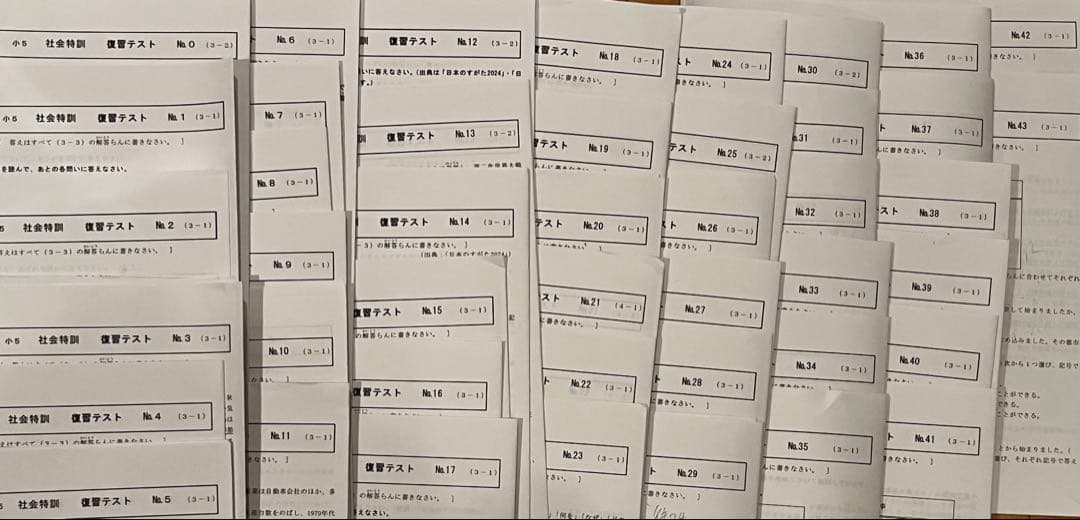 小5 社会特訓 復習テスト No.0 (3-2)
小5 社会特訓 復習テスト No.1 (3-1)
答えはすべて(3-3)の解答らんに書きなさい。 ]
を読んで、あとの各問いに答えなさい。
5 社会特訓 復習テスト No.2 (3-1)
答えはすべて(3-3)の解答らんに書きなさい。 ]
小5 社会特訓 復習テスト No.3 (3-1)
社会特訓 復習テスト No.4 (3-1)
えはすべて(3-3)の解答らんに書きなさい。 ]
社会特訓 復習テスト No.5 (3-1)
No.6 (3-1)
No.7 (3-1)
No.8 (3-1)
No.9 (3-1)
No.10 (3-1)
No.11 (3-1)
なさい。 ]
業は自動車会社のほか、多
産台数をのばし、1970年代
訓 復習テスト No.12 (3-2)
いに答えなさい。(出典は「日本のすがた2024」・「日
す。)
訓 復習テスト No.13 (3-2)
復習テスト No.14 (3-1)
-3)の解答らんに書きなさい。 ]
(出典:「日本のすがた2024」
復習テスト No.15 (3-1)
の解答らんに書きなさい。 ]
復習テスト No.16 (3-1)
復習テスト No.17 (3-1)
の解答らんに書きなさい。 ]
答えなさい。
習テスト No.18 (3-1)
んに書きなさい。 ]
習テスト No.19 (3-1)
テスト No.20 (3-1)
に書きなさい。
スト No.21 (4-1)
に書きなさい。 ]
ト No.22 (3-1)
No.23 (3-1)
なさい。 ]
スト No.24 (3-1)
きなさい。 ]
テスト No.25 (3-2)
スト No.26 (3-1)
書きなさい。 ]
No.27 (3-1)
ト No.28 (3-1)
ト No.29 (3-1)
きなさい。 ]
No.30 (3-2)
No.31 (3-1)
No.32 (3-1)
No.33 (3-1)
書きなさい。 ]
No.34 (3-1)
書きなさい。 ]
No.35 (3-1)
んに書きなさい。 ]
No.36 (3-1)
ト No.37 (3-1)
んに書きなさい。 ]
スト No.38 (3-1)
No.39 (3-1)
No.40 (3-1)
に書きなさい。 ]
ト No.41 (3-1)
書きなさい。 ]
No.42 (3-1)
きなさい。 ]
No.43 (3-1)
らんに合わせてそれぞれ
して始まりましたか。
め込みました。その都市
次から1つ選び、記号で
ことができる。
できる。
ことができる。
とから始まりました。(
選び、それぞれ記号で答え